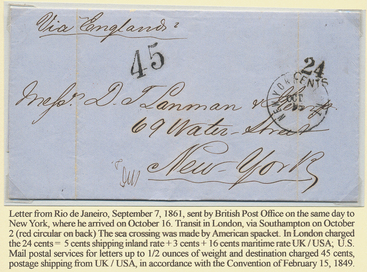 Via England
45
24
CENTS
NEW YORK
OCT
Messrs D. T. Lanman &
69 Water Street
New-York
Letter from Rio de Janeiro, September 7, 1861, sent by British Post Office on the same day to
New York, where he arrived on October 16. Transit in London, via Southampton on October
2 (red circular on back) The sea crossing was made by American spacket. In London charged
the 24 cents = 5 cents shipping inland rate + 3 cents + 16 cents maritime rate UK / USA; U.S.
Mail postal services for letters up to 1/2 ounces of weight and destination charged 45 cents,
postage shipping from UK / USA, in accordance with the Convention of February 15, 1849.